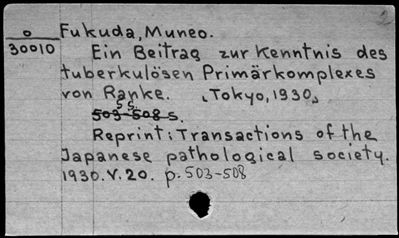 2
o Fukuda, Muneo.
30010 Ein Beitrag zur Kenntnis des
tuberkulösen Primärkomplexes
von Ranke. [Tokyo, 1930]
503-508 s.
Reprint: Transactions of the
Japanese pathological society.
1930. V. 20. p. 503-508